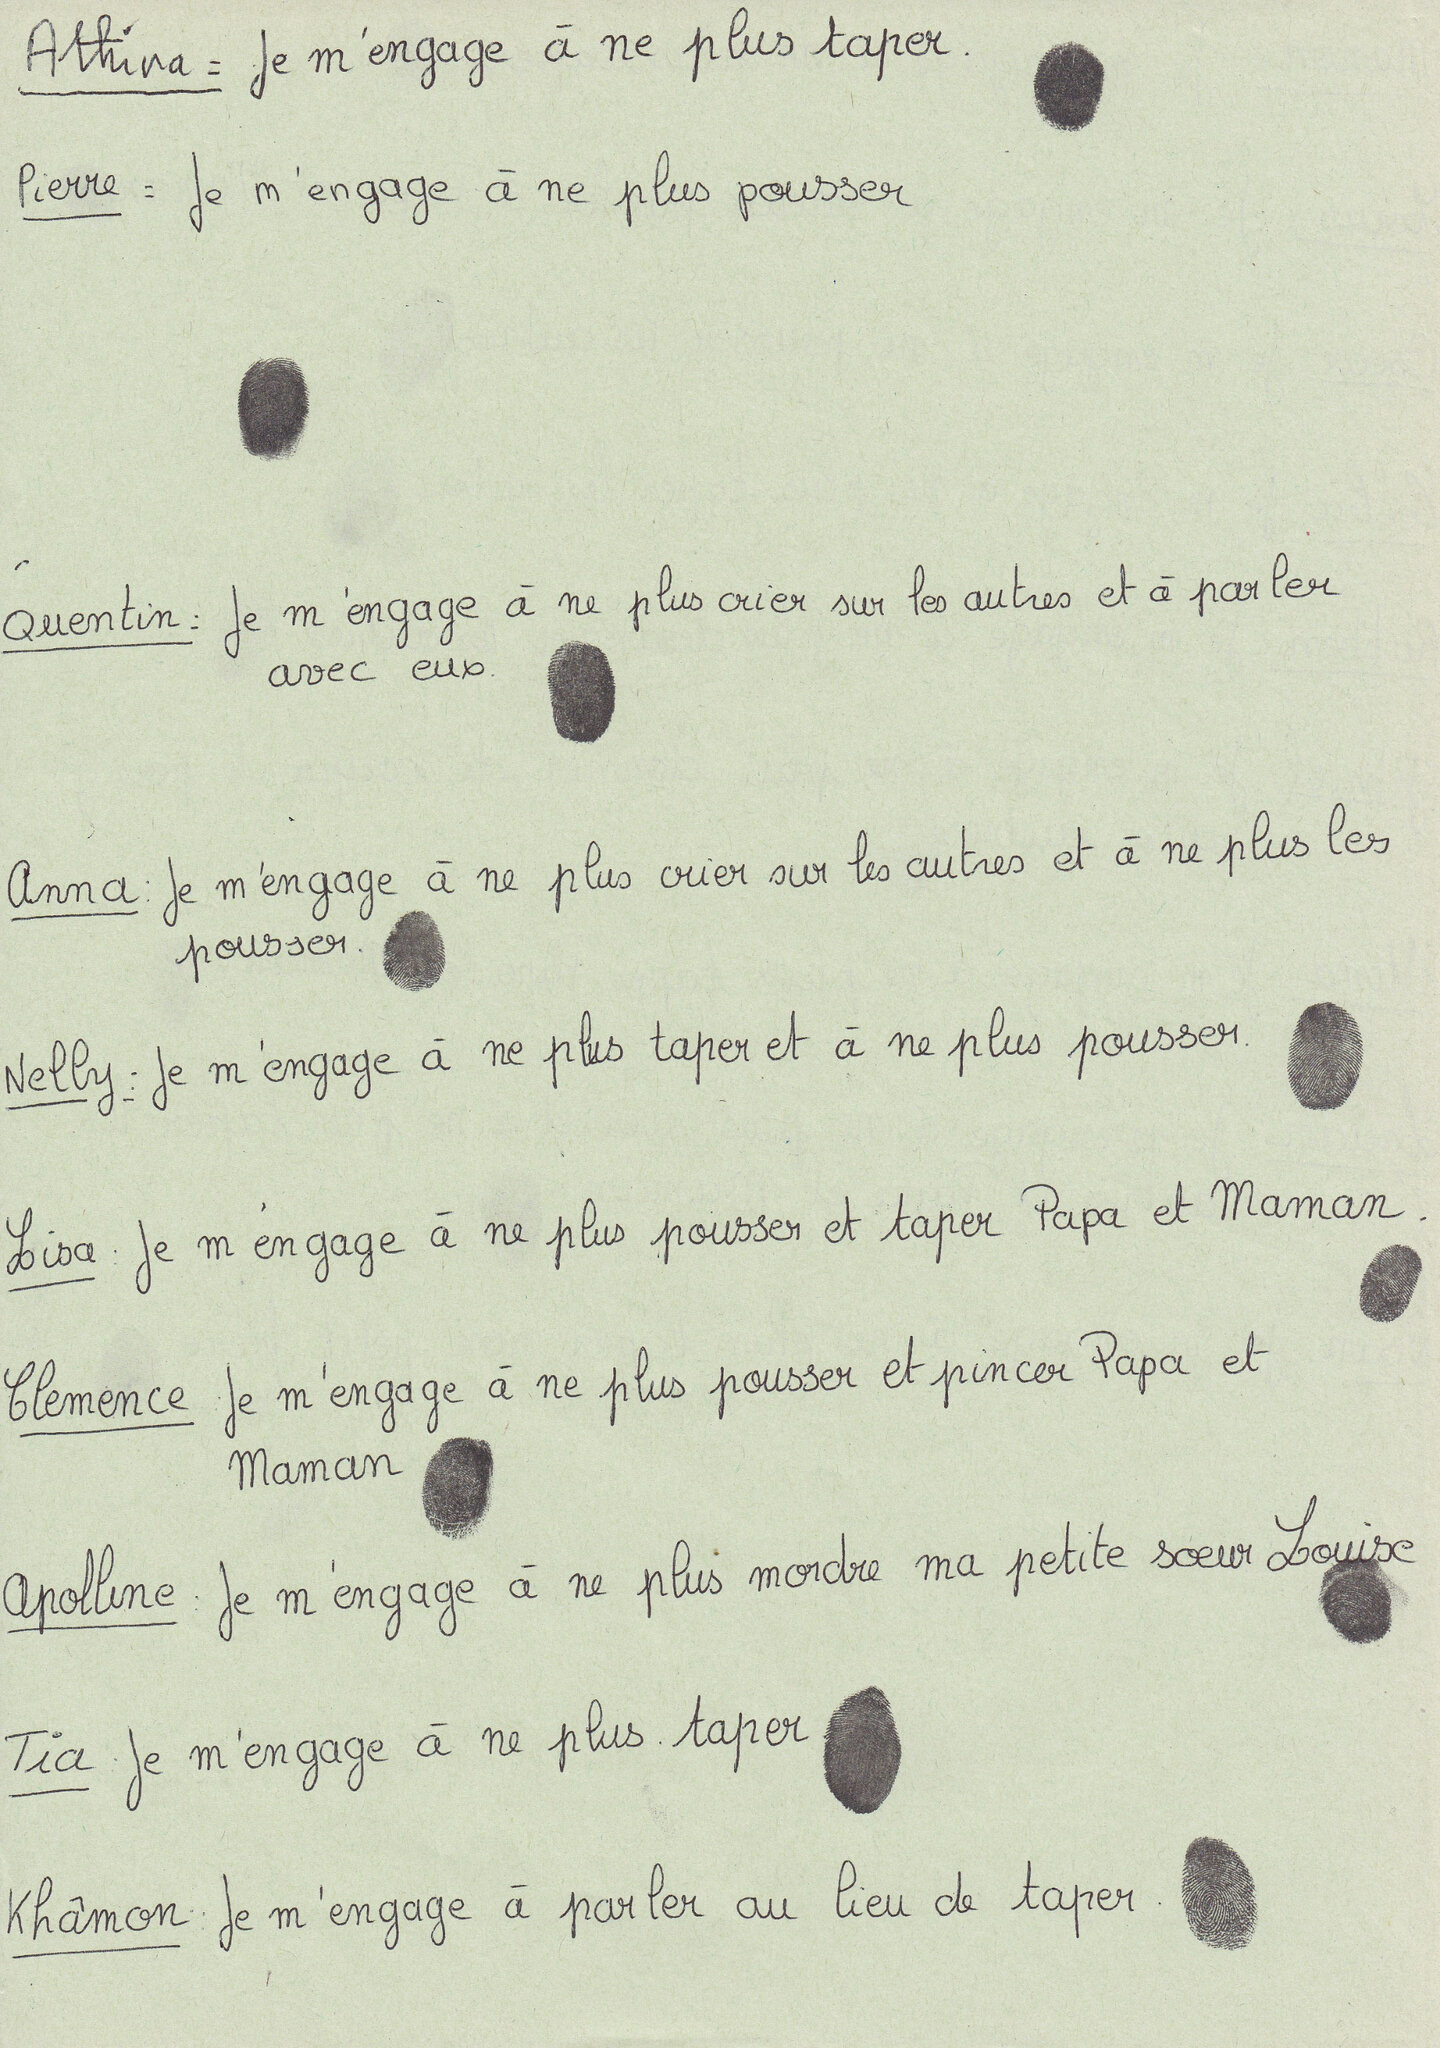 Athina = Je m'engage à ne plus taper.
Pierre = Je m'engage à ne plus pousser
Quentin : Je m'engage à ne plus crier sur les autres et à parler
avec eux.
Anna : Je m'engage à ne plus crier sur les autres et à ne plus les
pousser.
Nelly : Je m'engage à ne plus taper et à ne plus pousser.
Lisa : Je m'engage à ne plus pousser et taper Papa et Maman.
Clemence Je m'engage à ne plus pousser et pincer Papa et
Maman
Apolline : Je m'engage à ne plus mordre ma petite sœur Louise
Tia : Je m'engage à ne plus taper
Khâmon : Je m'engage à parler au lieu de taper.